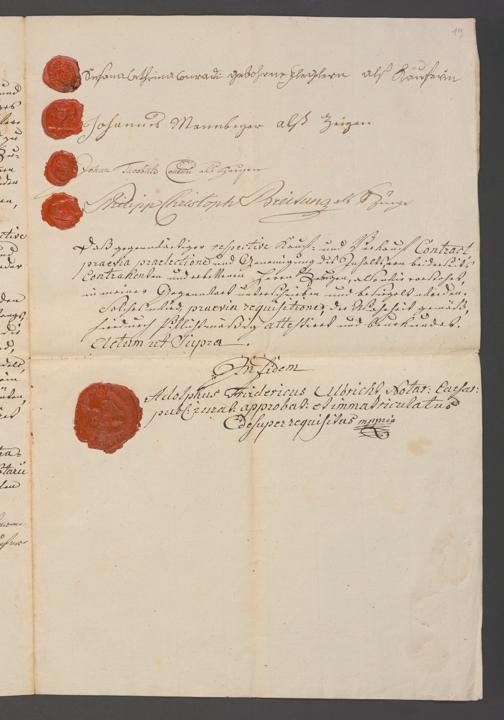 19
Susana Cathrina Conradi gebohrne als Käuferin
Johannes Mannberger alß Zeügen
Johan Jacobus Conradi alß Zeügen
Philipp Christoph Breitung als Zeuge
Daß gegenwärtiger respective Kauff- und Verkauff Contract
praevia praelectione und Genemigung deß Inhalts von beiderseits
Contrahenten und erbettenen Herrn Zeügen, also wie vorstehet,
in meiner Gegenwart unterschrieben und besiegelt worden,
Solches wird, praevia requisitione, der Wahrheit gemäß,
hierdurch attestiret und beurkundet.
Actum ut Supra
In Fidem
Adolphus Fridericus Ulbricht Notar: Caesar:
publ: jurat: approbat: et immatriculatus
desuper requisitus mppria